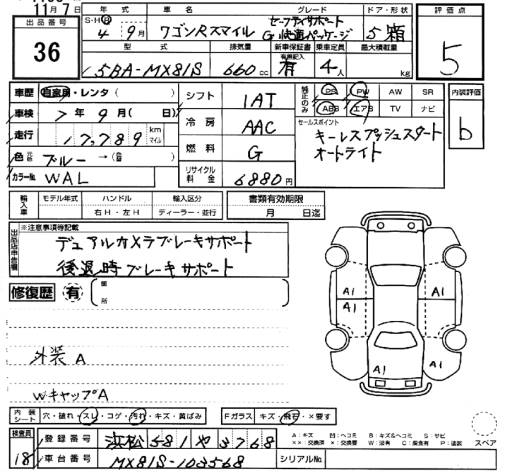 11月7日
出品番号 36
年式 車名 グレード ドア・形状 評価点
S・H・R 4年9月 ワゴンRスマイル セーフティサポート 5箱
G 快適パッケージ
型式 排気量 新車保証書 乗車定員 最大積載量
5BA-MX81S 660cc 有 4人 kg
5
車歴 自家用・レンタ( )
シフト 1AT
装備品のみ PS PW AW SR
ABS エアB TV ナビ
内装評価 b
車検 7年9月(日)
冷房 AAC
セールスポイント
キーレスプッシュスタート
オートライト
走行 17,789 km マイル
燃料 G
色 元色 ブルー→(色)
カラー№ WAL
リサイクル料金 6880円
輸入車 モデル年式 ハンドル 輸入区分
右H・左H ディーラー・並行
書類有効期限
月 日迄
出品店申告欄 ※注意事項等記載
デュアルカメラブレーキサポート
後退時ブレーキサポート
修復歴 有 箇所
A1 A1
A1 A1
外装A
WキャップA
内装シート 穴・破れ・スレ・コゲ・汚れ・キズ・黄ばみ
Fガラス キズ・飛石・×要す
スペア
検査員 18
登録番号 浜松581や3768
車台番号 MX81S-103568
シリアルNo.
A：キズ M：ヘコミ B：キズ&ヘコミ S：サビ
××：交換済 ×：要交換 W：波有 C：腐食有 P：塗装